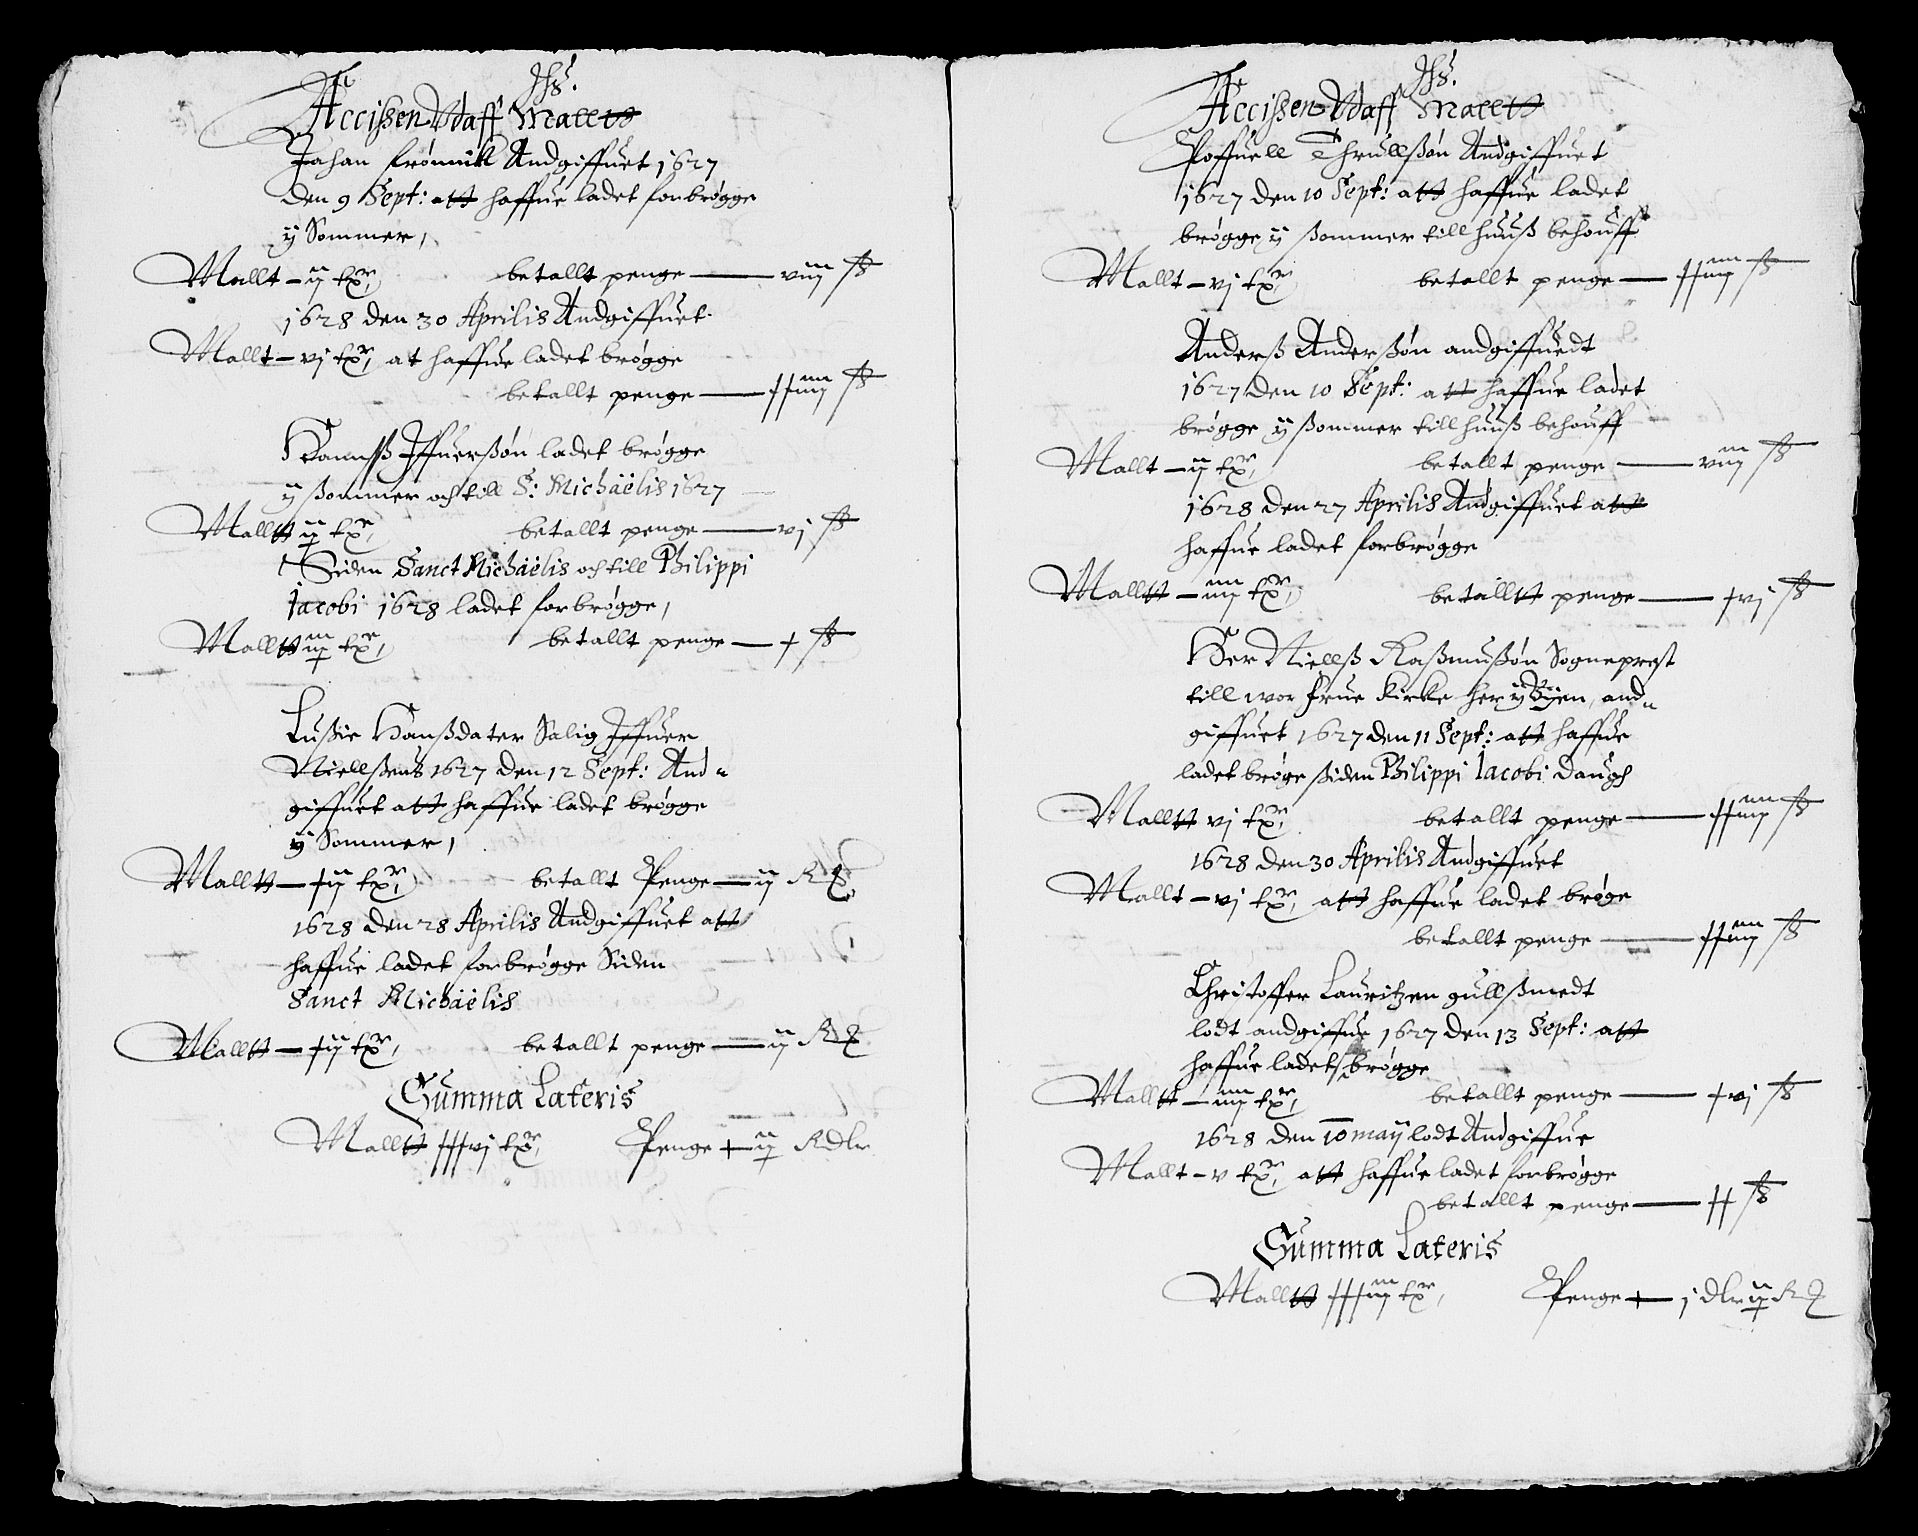 Jhs.
Accissen Udaff Malltt
Jahan Frønnik Andgiffuet 1627
den 9 Sept: att haffue ladet forbrøgge
ÿ Sommer,
Mallt - ij txr, betallt penge — viij ß
1628 den 30 Aprilis Andgiffuet
Mallt - vj txr, at haffue ladet brøgge
betallt penge — xxiiij ß
Hannß Iffuerßøn ladet brøgge
ÿ ßommer och till S: Michaëlis 1627
Malltt ij txr, betallt penge — vj ß
Siden Sanct Michaëlis och till Philippi
Jacobi 1628 ladet forbrøgge,
Malltt iij txr, betallt penge — x ß
Lußie Hanßdater Salig Iffuer
Niellßens 1627 den 12 Sept: And-
giffuet att haffue ladet brøgge
ÿ Sommer,
Malltt — xij txr, betallt Penge — ij R
1628 den 28 Aprilis Andgiffuet att
haffue ladet forbrøgge Siden
Sanct Michaëlis
Malltt — xij txr, betallt penge — ij R
Summa Lateris
Malltt xxxvj txr, Penge — Rdlr
Jhs.
Accissen Udaff Malltt
Poffuell Thrullßøn Andgiffuet
1627 den 10 Sept: att haffue ladet
brøgge ÿ ßommer till huuß behouff
Mallt - vj txr, betallt penge — xxiiij ß
Anderß Anderßøn andgiffuedt
1627 den 10 Sept: att haffue ladet
brøgge ÿ ßommer till huuß behouff
Mallt - ij txr, betallt penge — viij ß
1628 den 27 Aprilis Andgiffuet att
haffue ladet forbrøgge
Malltt - iiij txr, betalltt penge — xvj ß
Her Niellß Raßmußøn Sogneprest
till wor frue Kirke her ÿ Bÿen, and-
giffuet 1627 den 11 Sept: att haffue
ladet brøge ßiden Philippi Jacobi Daugh
Malltt vj txr, betallt penge — xxiiij ß
1628 den 30 Aprilis Andgiffuet
Mallt - vj txr, att haffue ladet brøge
betallt penge — xxiiij ß
Christoffer Lauritzen gullßmedt
lodt andgiffue 1627 den 13 Sept: att
haffue ladet brøgge
Malltt - iiij txr, betallt penge — xvj ß
1628 den 10 maÿ lodt Andgiffue
Mallt - v txr, att haffue ladet forbrøgge
betallt penge — xx ß
Summa Lateris
Malltt xxxiij txr, Penge — j dlr ij R